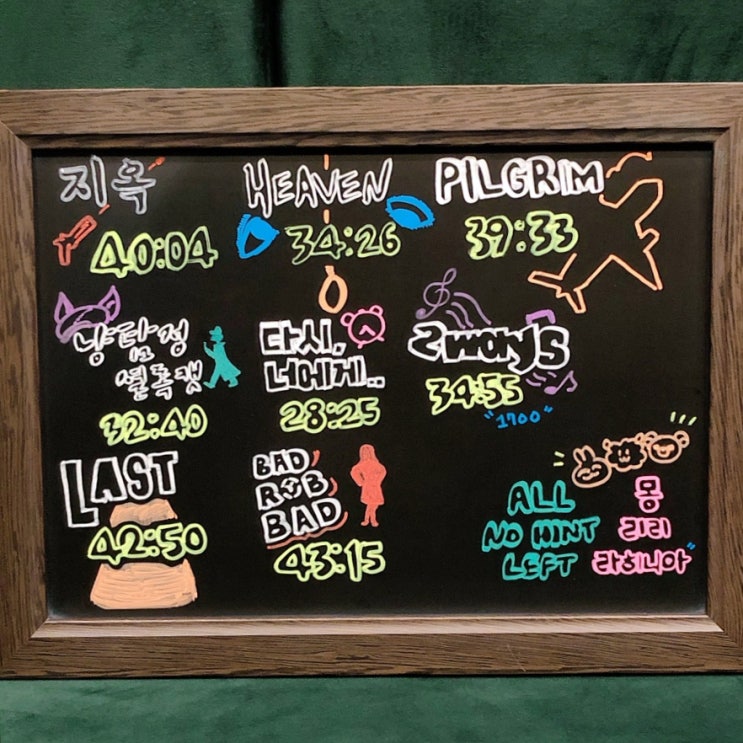 지옥
40:04
HEAVEN
34:26
PILGRIM
39:33
냥탐정
셜록캣
32:40
다시,
너에게..
28:25
2ways
34:55
"1700"
LAST
42:50
BAD
ROB
BAD
43:15
ALL
NO HINT
LEFT
몽
리리
라히니아"